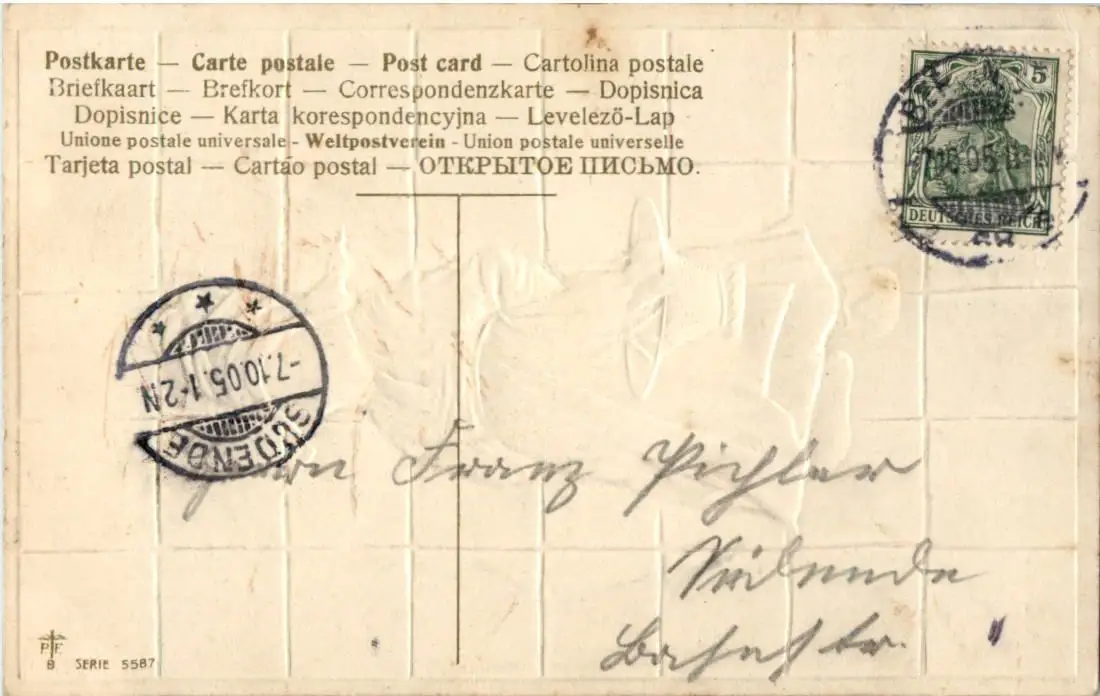 Postkarte — Carte postale — Post card — Cartolina postale
Briefkaart — Brefkort — Correspondenzkarte — Dopisnica
Dopisnice — Karta korespondencyjna — Levelező-Lap
Unione postale universale - Weltpostverein - Union postale universelle
Tarjeta postal — Cartão postal — ОТКРЫТОЕ ПИСЬМО.
5
DEUTSCHES REICH
-7.10.05.1-2N
SÜDENDE
Herrn Franz Pichler
Südende
Bahnstr.
PF
B SERIE 5587